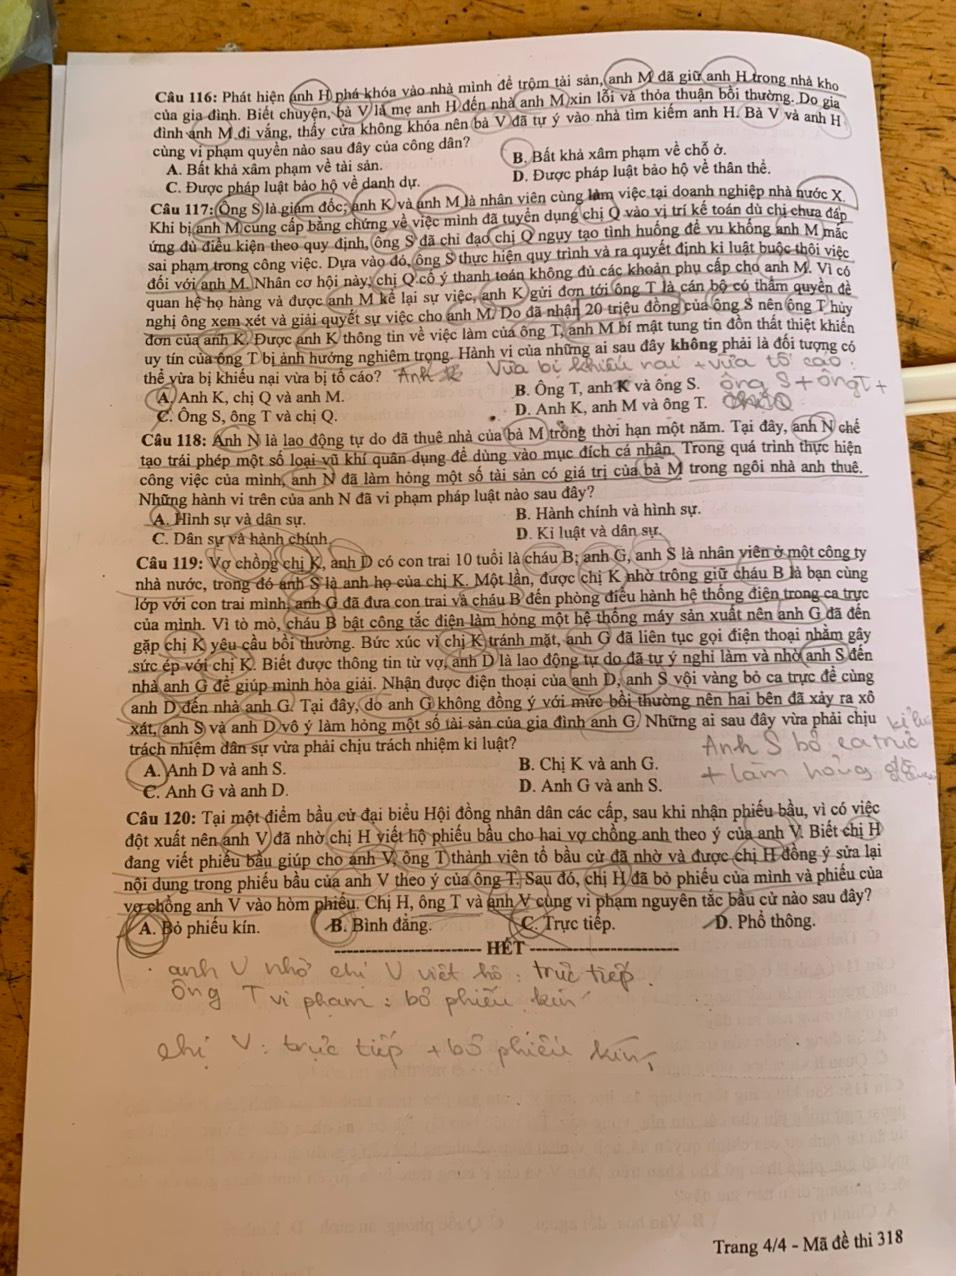 Câu 116: Phát hiện anh H phá khóa vào nhà mình để trộm tài sản, anh M đã giữ anh H trong nhà kho
của gia đình. Biết chuyện, bà V là mẹ anh H đến nhà anh M xin lỗi và thỏa thuận bồi thường. Do gia
đình anh M đi vắng, thấy cửa không khóa nên bà V đã tự ý vào nhà tìm kiếm anh H. Bà V và anh H
cùng vi phạm quyền nào sau đây của công dân?
A. Bất khả xâm phạm về tài sản.
B. Bất khả xâm phạm về chỗ ở.
C. Được pháp luật bảo hộ về danh dự.
D. Được pháp luật bảo hộ về thân thể.
Câu 117: Ông S là giám đốc; anh K và anh M là nhân viên cùng làm việc tại doanh nghiệp nhà nước X.
Khi bị anh M cung cấp bằng chứng về việc mình đã tuyển dụng chị Q vào vị trí kế toán dù chị chưa đáp
ứng đủ điều kiện theo quy định, ông S đã chỉ đạo chị Q ngụy tạo tình huống để vu khống anh M mắc
sai phạm trong công việc. Dựa vào đó, ông S thực hiện quy trình và ra quyết định kỉ luật buộc thôi việc
đối với anh M. Nhân cơ hội này, chị Q cố ý thanh toán không đủ các khoản phụ cấp cho anh M. Vì có
quan hệ họ hàng và được anh M kể lại sự việc, anh K gửi đơn tới ông T là cán bộ có thẩm quyền đề
nghị ông xem xét và giải quyết sự việc cho anh M. Do đã nhận 20 triệu đồng của ông S nên ông T hủy
đơn của anh K. Được anh K thông tin về việc làm của ông T, anh M bí mật tung tin đồn thất thiệt khiến
uy tín của ông T bị ảnh hưởng nghiêm trọng. Hành vi của những ai sau đây không phải là đối tượng có
thể vừa bị khiếu nại vừa bị tố cáo? Anh K Vừa bị khiếu nại + vừa tố cáo:
A. Anh K, chị Q và anh M.
B. Ông T, anh K và ông S. ông S + ông T +
C. Ông S, ông T và chị Q.
D. Anh K, anh M và ông T.
Câu 118: Anh N là lao động tự do đã thuê nhà của bà M trong thời hạn một năm. Tại đây, anh N chế
tạo trái phép một số loại vũ khí quân dụng để dùng vào mục đích cá nhân. Trong quá trình thực hiện
công việc của mình, anh N đã làm hỏng một số tài sản có giá trị của bà M trong ngôi nhà anh thuê.
Những hành vi trên của anh N đã vi phạm pháp luật nào sau đây?
A. Hình sự và dân sự.
B. Hành chính và hình sự.
C. Dân sự và hành chính.
D. Kỉ luật và dân sự.
Câu 119: Vợ chồng chị K, anh D có con trai 10 tuổi là cháu B; anh G, anh S là nhân viên ở một công ty
nhà nước, trong đó anh S là anh họ của chị K. Một lần, được chị K nhờ trông giữ cháu B là bạn cùng
lớp với con trai mình, anh G đã đưa con trai và cháu B đến phòng điều hành hệ thống điện trong ca trực
của mình. Vì tò mò, cháu B bật công tắc điện làm hỏng một hệ thống máy sản xuất nên anh G đã đến
gặp chị K yêu cầu bồi thường. Bức xúc vì chị K tránh mặt, anh G đã liên tục gọi điện thoại nhằm gây
sức ép với chị K. Biết được thông tin từ vợ, anh D là lao động tự do đã tự ý nghỉ làm và nhờ anh S đến
nhà anh G để giúp mình hòa giải. Nhận được điện thoại của anh D, anh S vội vàng bỏ ca trực để cùng
anh D đến nhà anh G. Tại đây, do anh G không đồng ý với mức bồi thường nên hai bên đã xảy ra xô
xát, anh S và anh D vô ý làm hỏng một số tài sản của gia đình anh G. Những ai sau đây vừa phải chịu
trách nhiệm dân sự vừa phải chịu trách nhiệm kỉ luật? Anh S bỏ ca trực
A. Anh D và anh S.
B. Chị K và anh G. + làm hỏng
C. Anh G và anh D.
D. Anh G và anh S.
Câu 120: Tại một điểm bầu cử đại biểu Hội đồng nhân dân các cấp, sau khi nhận phiếu bầu, vì có việc
đột xuất nên anh V đã nhờ chị H viết hộ phiếu bầu cho hai vợ chồng anh theo ý của anh V. Biết chị H
đang viết phiếu bầu giúp cho anh V, ông T thành viên tổ bầu cử đã nhờ và được chị H đồng ý sửa lại
nội dung trong phiếu bầu của anh V theo ý của ông T. Sau đó, chị H đã bỏ phiếu của mình và phiếu của
vợ chồng anh V vào hòm phiếu. Chị H, ông T và anh V cùng vi phạm nguyên tắc bầu cử nào sau đây?
A. Bỏ phiếu kín. B. Bình đẳng. C. Trực tiếp. D. Phổ thông.
HẾT
anh V nhờ chị V viết hộ: trực tiếp.
ông T vi phạm: bỏ phiếu kín
chị V: trực tiếp + bỏ phiếu kín
Trang 4/4 - Mã đề thi 318